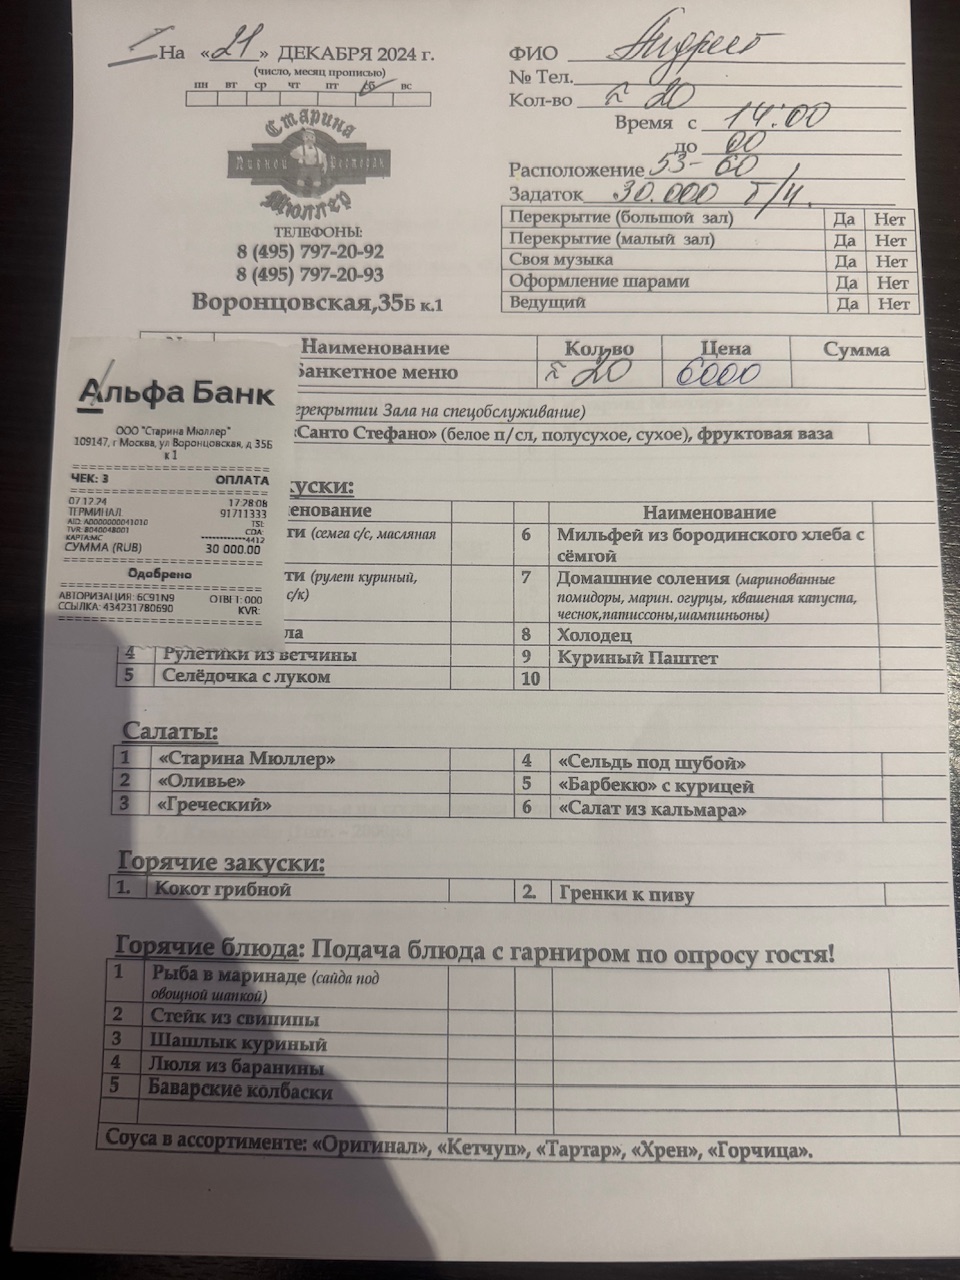 На «21» ДЕКАБРЯ 2024 г.
(число, месяц прописью)
пн вт ср чт пт сб вс
Старина
Пивной Ресторан
Мюллер
ТЕЛЕФОНЫ:
8 (495) 797-20-92
8 (495) 797-20-93
Воронцовская,35Б к.1
ФИО Андрей
№ Тел.
Кол-во ≈ 20
Время с 14:00
до 00
Расположение 53-60
Задаток 30.000 Т/Н.
Перекрытие (большой зал) Да Нет
Перекрытие (малый зал) Да Нет
Своя музыка Да Нет
Оформление шарами Да Нет
Ведущий Да Нет
Наименование Кол-во Цена Сумма
Банкетное меню ≈ 20 6000
перекрытии Зала на спецобслуживание)
«Санто Стефано» (белое п/сл, полусухое, сухое), фруктовая ваза
Альфа Банк
ООО "Старина Мюллер"
109147, г Москва, ул Воронцовская, д 35Б
к 1
ЧЕК: 3 ОПЛАТА
07.12.24 17:28:08
ТЕРМИНАЛ 91711333
AID: A0000000041010 TSI:
TVR: 8040048001 CDA:
КАРТА:MC ************4412
СУММА (RUB) 30 000.00
Одобрено
АВТОРИЗАЦИЯ: 6C91N9 ОТВЕТ: 000
ССЫЛКА: 434231780690 KVR:
куски:
менование Наименование
ти (семга с/с, масляная
6 Мильфей из бородинского хлеба с
сёмгой
ти (рулет куриный,
с/к)
7 Домашние соления (маринованные
помидоры, марин. огурцы, квашеная капуста,
чеснок,патиссоны,шампиньоны)
ла 8 Холодец
4 Рулетики из ветчины 9 Куриный Паштет
5 Селёдочка с луком 10
Салаты:
1 «Старина Мюллер» 4 «Сельдь под шубой»
2 «Оливье» 5 «Барбекю» с курицей
3 «Греческий» 6 «Салат из кальмара»
Горячие закуски:
1. Кокот грибной 2. Гренки к пиву
Горячие блюда: Подача блюда с гарниром по опросу гостя!
1 Рыба в маринаде (сайда под
овощной шапкой)
2 Стейк из свинины
3 Шашлык куриный
4 Люля из баранины
5 Баварские колбаски
Соуса в ассортименте: «Оригинал», «Кетчуп», «Тартар», «Хрен», «Горчица».